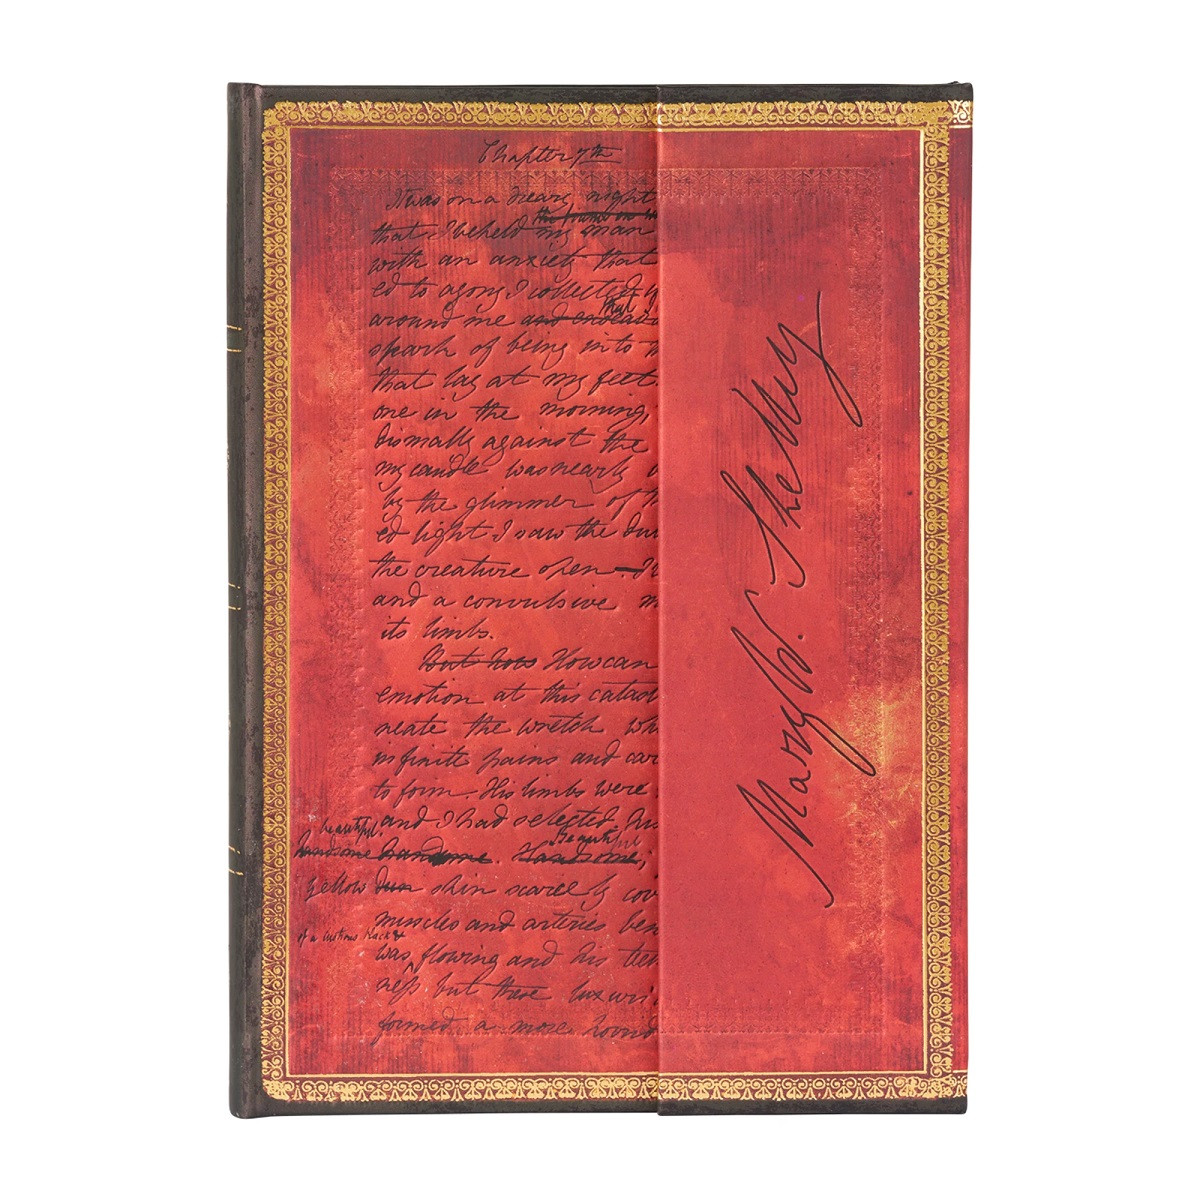 Chapter 7th
It was on a dreary night
that I beheld my man
with an anxiety that
ed to agony I collected
around me and endeav
that
spark of being into
that lay at my feet.
one in the morning,
dismally against the
my candle was nearly
by the glimmer of
ed light I saw the du
the creature open - I
and a convulsive
its limbs.
But how How can
emotion at this catas
neate the wretch wh
infinite pains and car
to form. His limbs were
and I had selected his
beautiful. Beautiful
handsome handsome. Handsome,
yellow dun skin scarcely cov
muscles and arteries ben
of a lustrous black &
was flowing and his tee
ness but these luxuri
formed a more horri
Mary W. Shelley